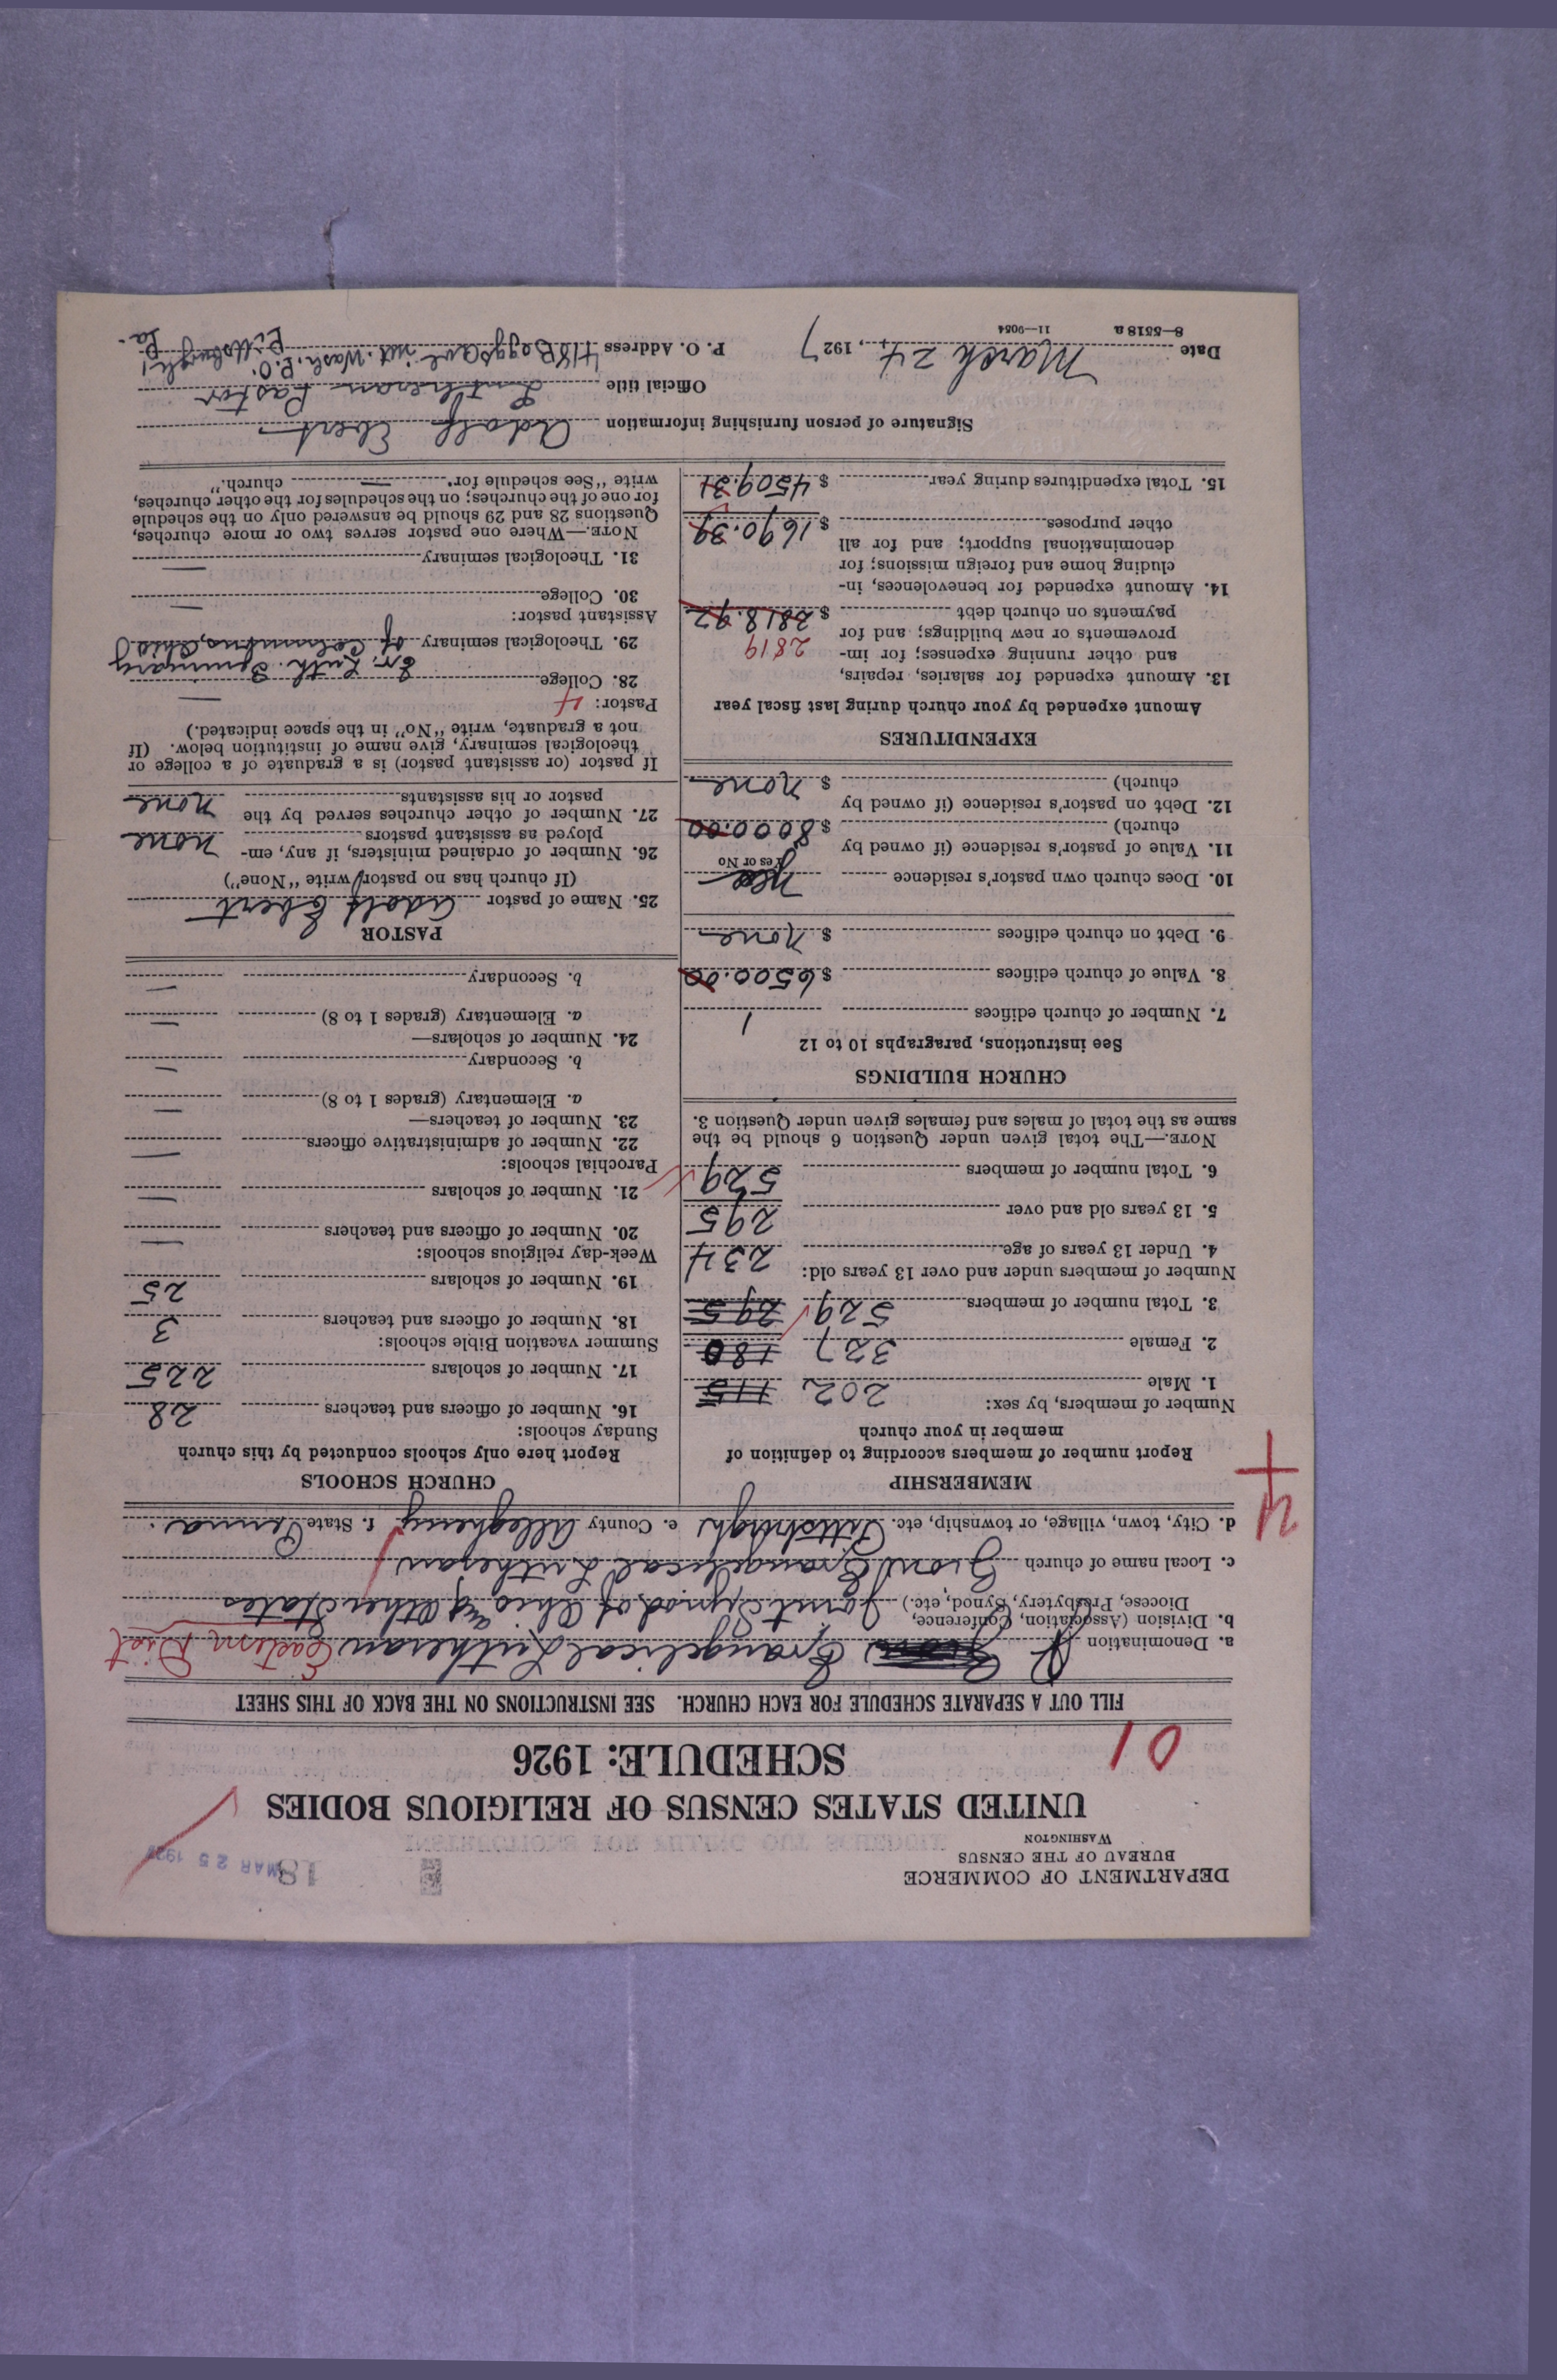 DEPARTMENT OF COMMERCE
BUREAU OF THE CENSUS
WASHINGTON
MAR 25 192
18
UNITED STATES CENSUS OF RELIGIOUS BODIES
SCHEDULE: 1926
01
FILL OUT A SEPARATE SCHEDULE FOR EACH CHURCH. SEE INSTRUCTIONS ON THE BACK OF THIS SHEET
a. Denomination Evangelical Lutheran Eastern Dist
b. Division (Association, Conference, Diocese, Presbytery, Synod, etc.) Joint Synod of Ohio and Other States
c. Local name of church Zion Evangelical Lutheran
d. City, town, village, or township, etc. Pittsburgh e. County Allegheny f. State Penna.
4
MEMBERSHIP
Report number of members according to definition of
member in your church
Number of members, by sex:
1. Male 202 115
2. Female 327 180
3. Total number of members 529 295
Number of members under and over 13 years old:
4. Under 13 years of age 234
5. 13 years old and over 295
6. Total number of members 529
NOTE.—The total given under Question 6 should be the
same as the total of males and females given under Question 3.
CHURCH BUILDINGS
See instructions, paragraphs 10 to 12
7. Number of church edifices 1
8. Value of church edifices $ 6500.00
9. Debt on church edifices $ none
10. Does church own pastor's residence Yes
Yes or No
11. Value of pastor's residence (if owned by
church) $ 8000.00
12. Debt on pastor's residence (if owned by
church) $ none
EXPENDITURES
Amount expended by your church during last fiscal year
13. Amount expended for salaries, repairs,
and other running expenses; for im-
provements or new buildings; and for 2819
payments on church debt $ 2818.92
14. Amount expended for benevolences, in-
cluding home and foreign missions; for
denominational support; and for all
other purposes $ 1690.39
15. Total expenditures during year $ 4509.31
CHURCH SCHOOLS
Report here only schools conducted by this church
Sunday schools:
16. Number of officers and teachers 28
17. Number of scholars 225
Summer vacation Bible schools:
18. Number of officers and teachers 3
19. Number of scholars 25
Week-day religious schools:
20. Number of officers and teachers —
21. Number of scholars —
Parochial schools:
22. Number of administrative officers —
23. Number of teachers—
a. Elementary (grades 1 to 8) —
b. Secondary —
24. Number of scholars—
a. Elementary (grades 1 to 8) —
b. Secondary —
PASTOR
25. Name of pastor Adolf Ebert
(If church has no pastor, write "None")
26. Number of ordained ministers, if any, em-
ployed as assistant pastors none
27. Number of other churches served by the
pastor or his assistants none
If pastor (or assistant pastor) is a graduate of a college or
theological seminary, give name of institution below. (If
not a graduate, write "No" in the space indicated.)
Pastor: 4
28. College —
29. Theological seminary Ev. Luth Seminary of Columbus, Ohio
Assistant pastor:
30. College —
31. Theological seminary —
NOTE.—Where one pastor serves two or more churches,
Questions 28 and 29 should be answered only on the schedule
for one of the churches; on the schedules for the other churches,
write "See schedule for — church."
Signature of person furnishing information Adolf Ebert
Official title Lutheran Pastor
Date March 24, 1927 P. O. Address 418 Boggs Ave Mt. Wash. P.O. Pittsburgh, Pa.
8—5518 a 11—9054